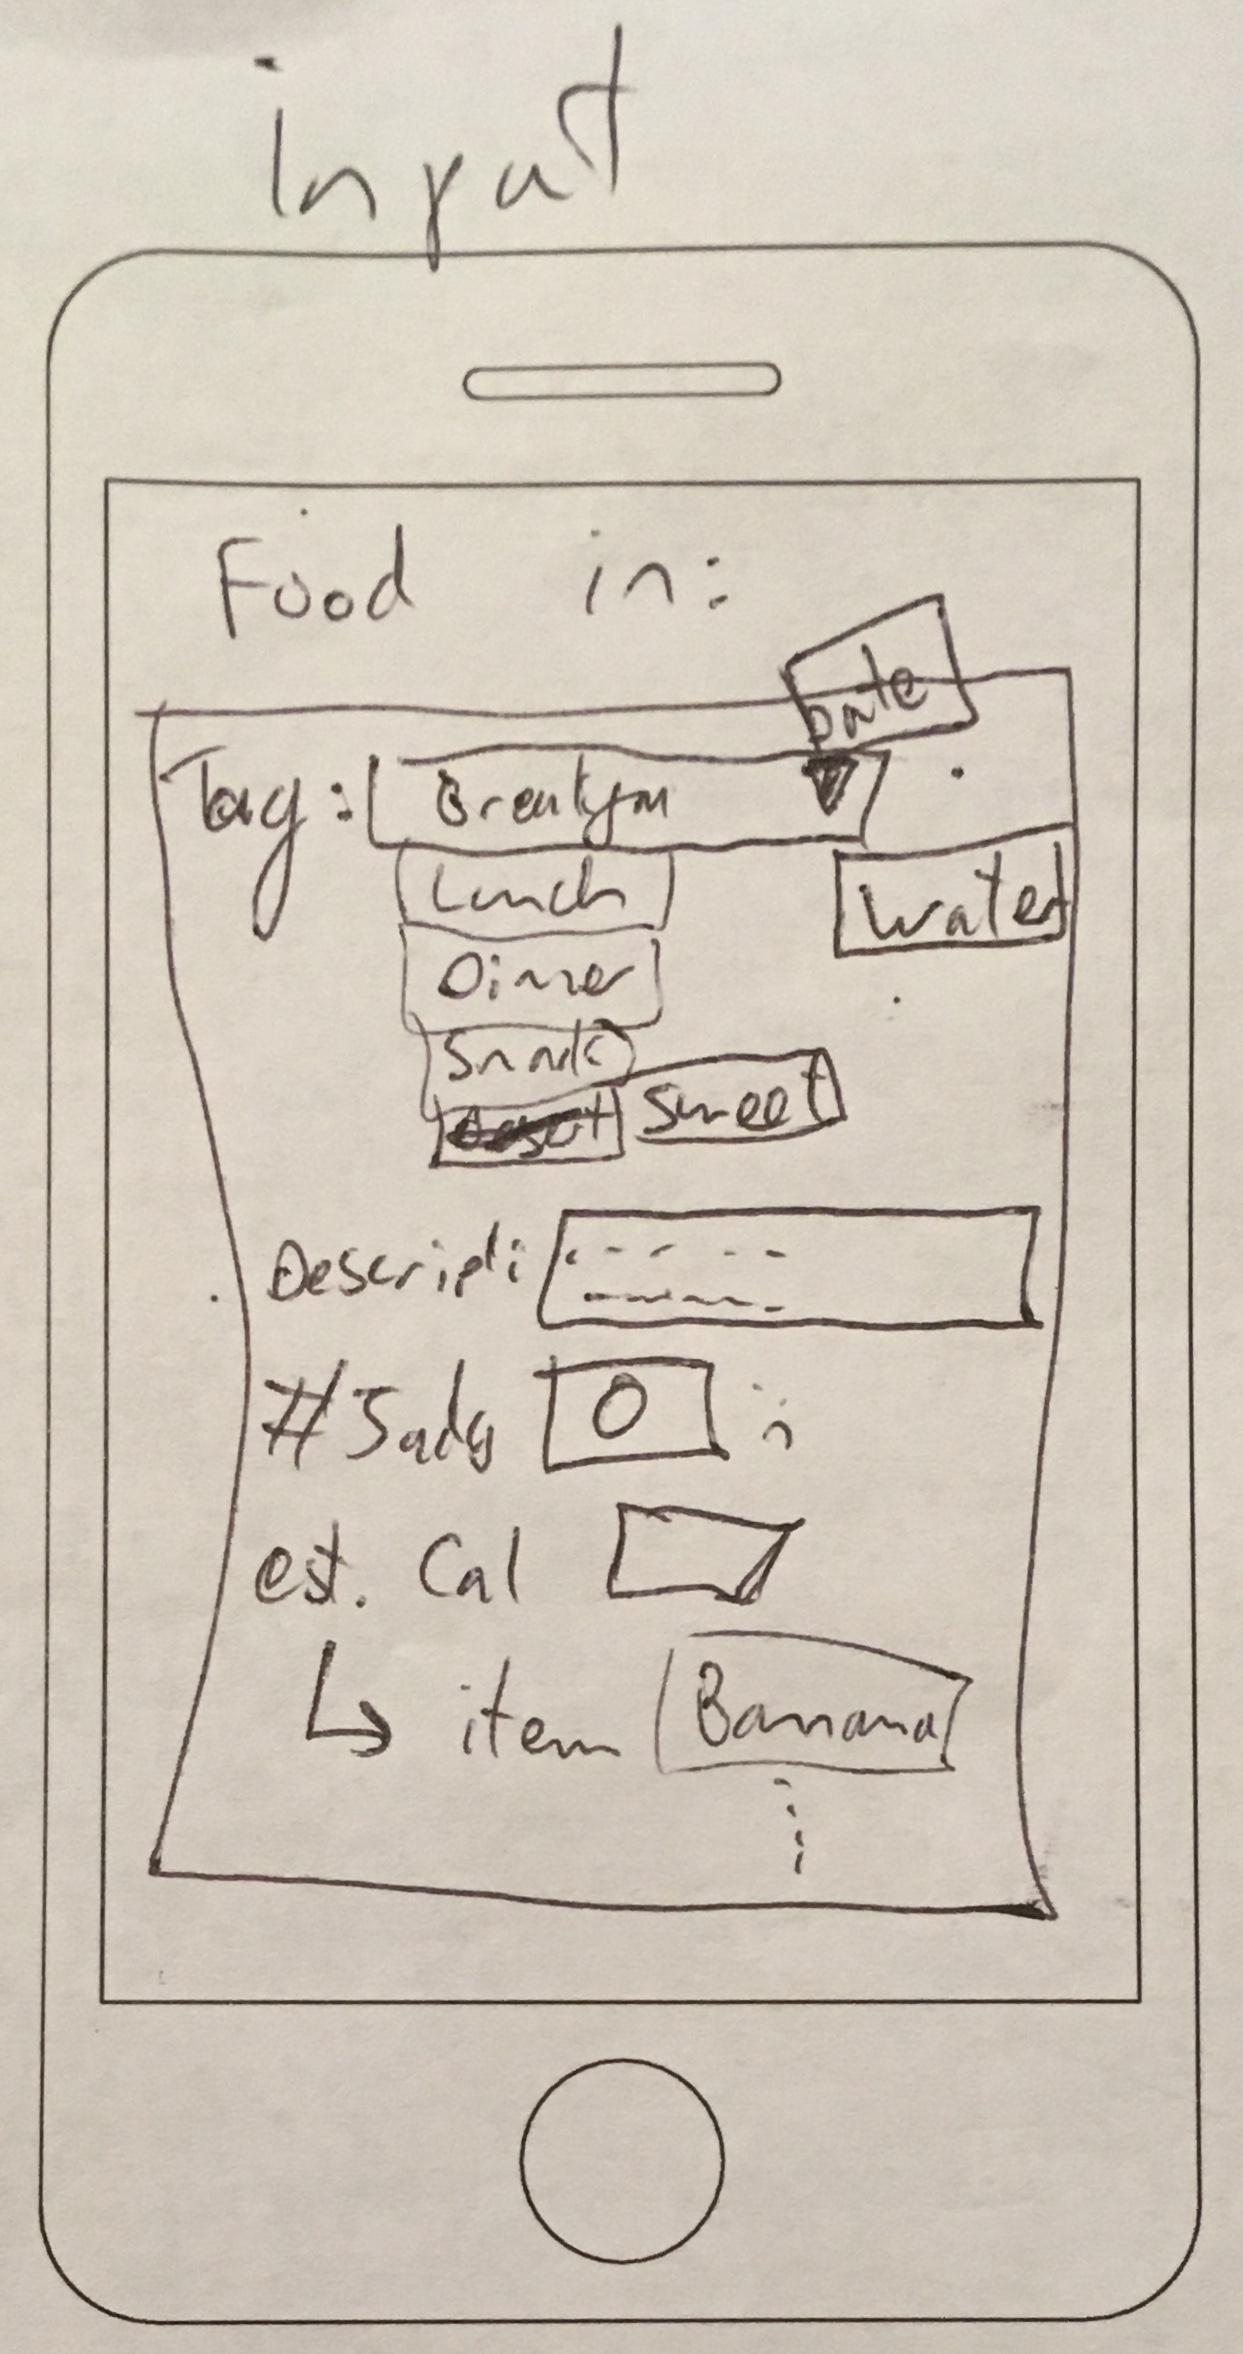 input
Food in:
Date
Tag:
Lunch
Water
Dinner
Snack
Sweet
Descripti
0
est. Cal
item Banana